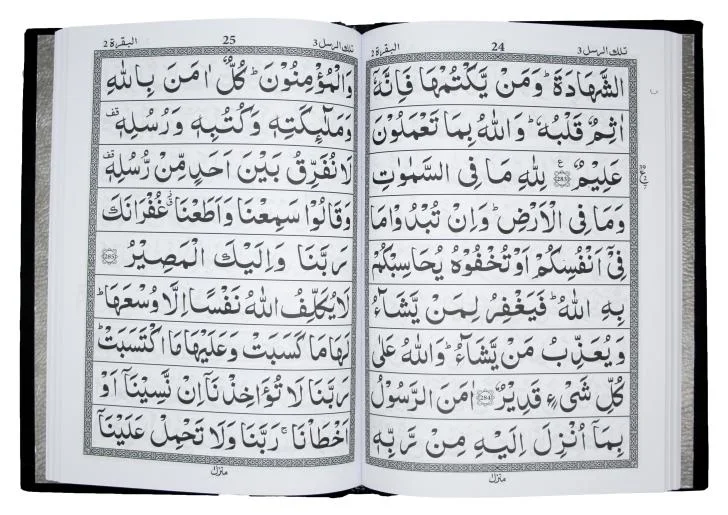 تلك الرسل 3 24 البقرة 2
الشَّهَادَةَ ؕ وَمَنْ يَّكْتُمْهَا فَاِنَّهٗۤ
اٰثِمٌ قَلْبُهٗ ؕ وَاللّٰهُ بِمَا تَعْمَلُوْنَ
عَلِيْمٌ ۟ 283 ع لِلّٰهِ مَا فِى السَّمٰوٰتِ
وَمَا فِى الْاَرْضِ ؕ وَاِنْ تُبْدُوْا مَا
فِىْۤ اَنْفُسِكُمْ اَوْ تُخْفُوْهُ يُحَاسِبْكُمْ
بِهِ اللّٰهُ ؕ فَيَغْفِرُ لِمَنْ يَّشَآءُ
وَيُعَذِّبُ مَنْ يَّشَآءُ ؕ وَاللّٰهُ عَلٰى
كُلِّ شَىْءٍ قَدِيْرٌ 284 اٰمَنَ الرَّسُوْلُ
بِمَاۤ اُنْزِلَ اِلَيْهِ مِنْ رَّبِّهٖ
منزل
تلك الرسل 3 25 البقرة 2
وَالْمُؤْمِنُوْنَ ؕ كُلٌّ اٰمَنَ بِاللّٰهِ
وَمَلٰٓئِكَتِهٖ وَكُتُبِهٖ وَرُسُلِهٖ قف
لَا نُفَرِّقُ بَيْنَ اَحَدٍ مِّنْ رُّسُلِهٖ قف
وَقَالُوْا سَمِعْنَا وَاَطَعْنَا غُفْرَانَكَ
رَبَّنَا وَاِلَيْكَ الْمَصِيْرُ 285
لَا يُكَلِّفُ اللّٰهُ نَفْسًا اِلَّا وُسْعَهَا ؕ
لَهَا مَا كَسَبَتْ وَعَلَيْهَا مَا اكْتَسَبَتْ ؕ
رَبَّنَا لَا تُؤَاخِذْنَاۤ اِنْ نَّسِيْنَاۤ اَوْ
اَخْطَاْنَا ۚ رَبَّنَا وَلَا تَحْمِلْ عَلَيْنَاۤ
منزل